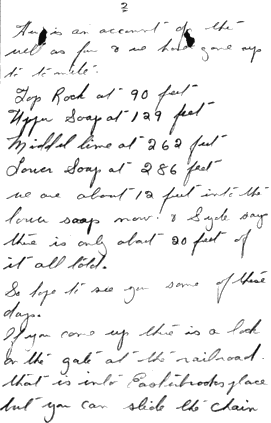 2
This is an account of the
well as far as we have gone up
to to nite.
Top Rock at 90 feet
Upper Soap at 129 feet
Middel lime at 262 feet
Lower Soap at 286 feet
we are about 12 feet into the
lower soap now. & Syde say
there is only about 20 feet of
it all told.
So hope to see you some of these
days.
If you come up there is a lock
on the gate at the railroad.
that is into Easterbrooks place
but you can slide the chain